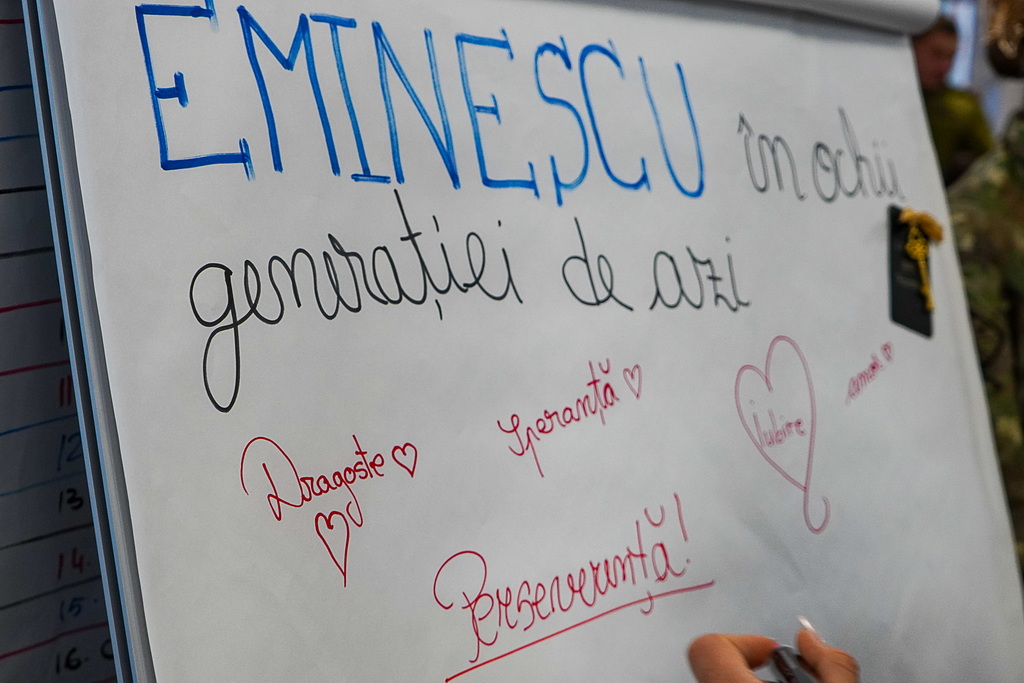 EMINESCU în ochii
generației de azi
Dragoste
Speranță
Iubire
Amor
Perseverență!
13
14.
15.
16.